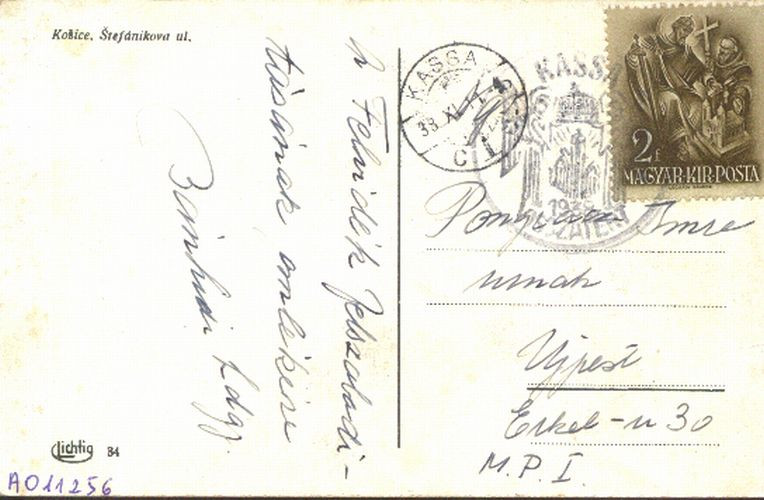 Košice, Štefánikova ul.
A Felvidék felszabadí-
tásának emlékére
KASSA
38 XI. 11
C 1
KASSA
1938
VISSZATÉRT
2 f
MAGYAR·KIR·POSTA
Imre
urnak
Ujpest
Erkel-u 30
M. P. I.
Lichtig 34
A011256